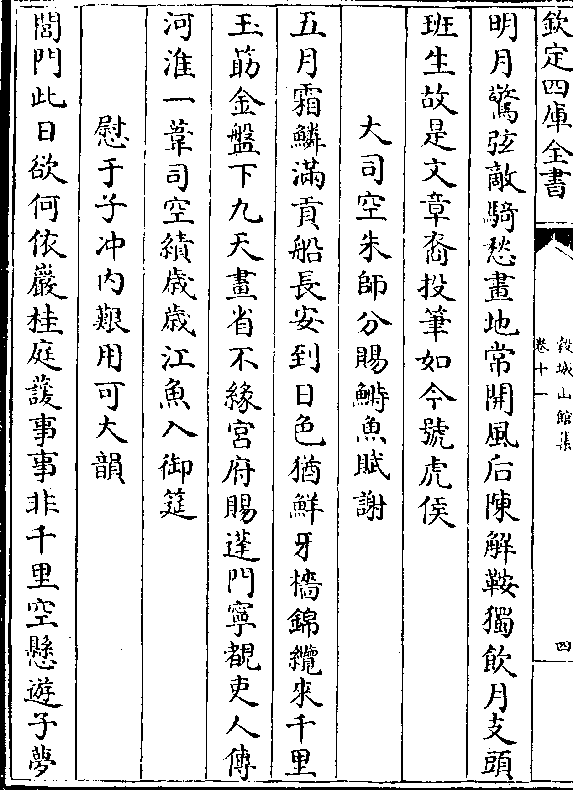 欽定四庫全書
穀城山館集
卷十一
四
明月驚弦敵騎愁畫地常開風后陳解鞍獨飲月支頭
班生故是文章裔投筆如今號虎侯
大司空朱師分賜鰣魚賦謝
五月霜鱗滿貢船長安到日色猶鮮牙檣錦纜來千里
玉筯金盤下九天畫省不緣宮府賜蓬門寧覩吏人傳
河淮一葦司空績歳歳江魚入御筵
慰于子冲内艱用可大韻
閶門此日欲何依巖桂庭萲事事非千里空懸遊子夢